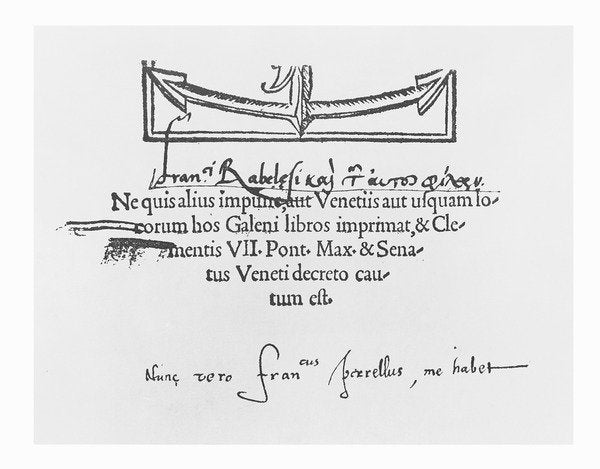 Franci Rabelęsi καὶ τῶν αὐτοῦ φίλων.
Ne quis alius impune, aut Venetiis aut usquam lo-
corum hos Galeni libros imprimat, & Cle-
mentis VII. Pont. Max. & Sena-
tus Veneti decreto cau-
tum est.
Nunc vero Francus me habet